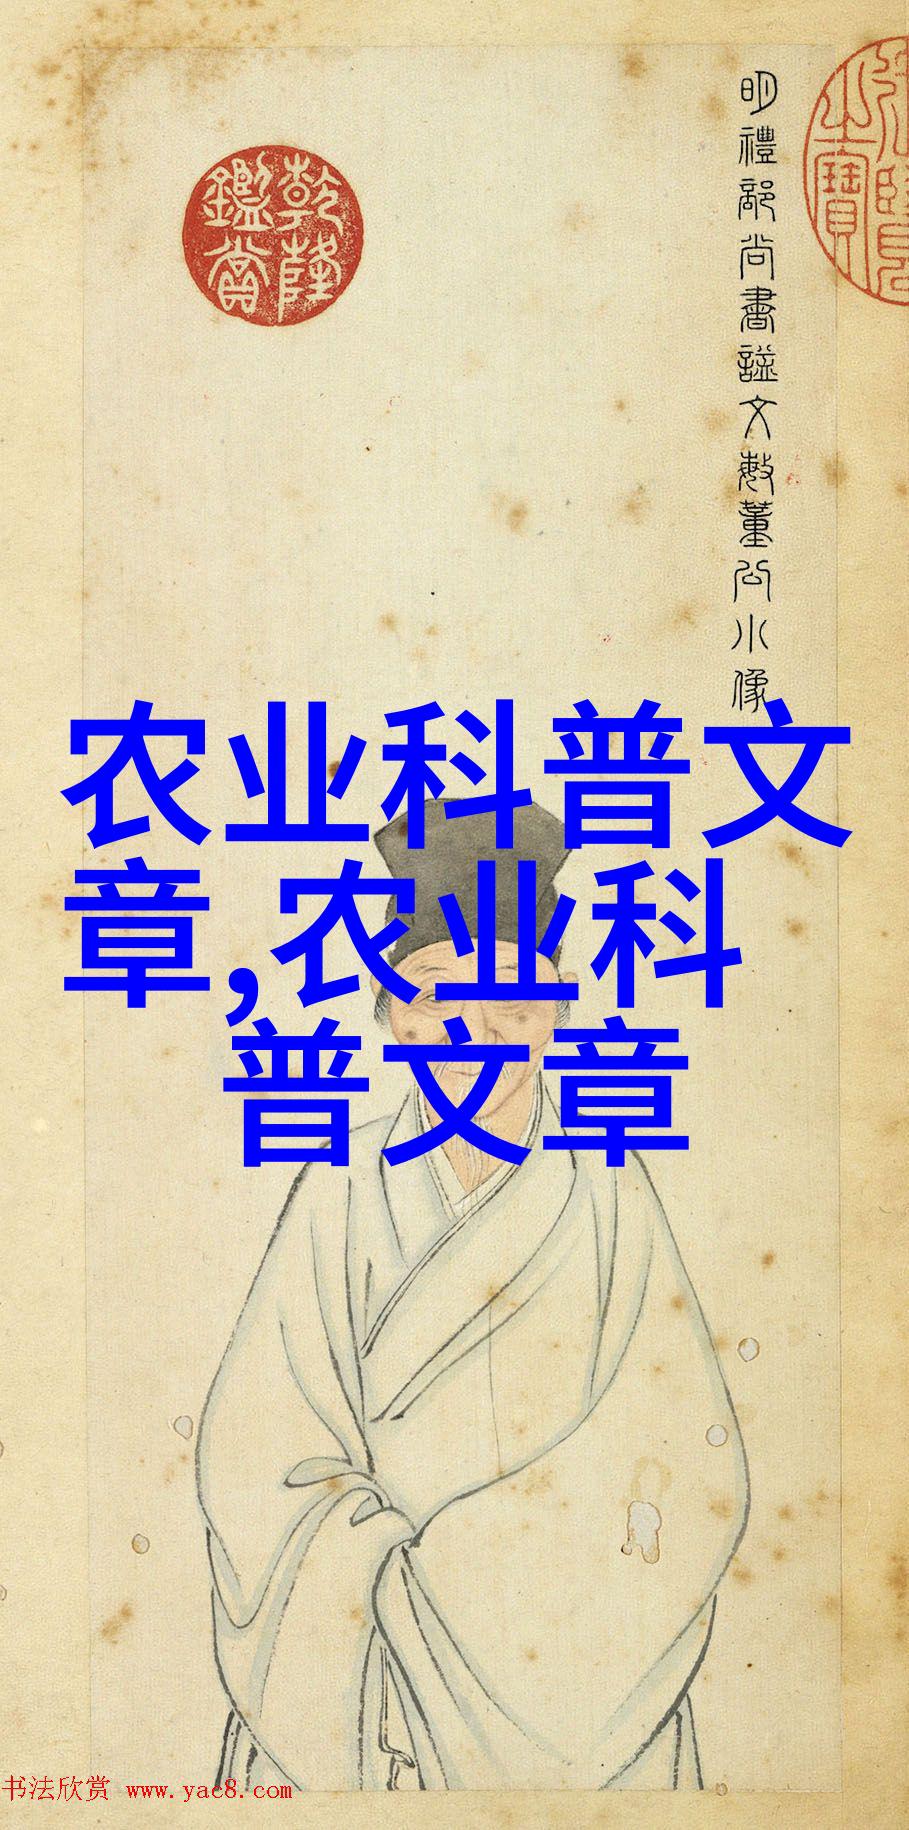 明禮部尚書謚文敏董公小像
乾隆
鑑賞
农业科普文
章,农业科
普文章
书法欣赏 www.yac8.com